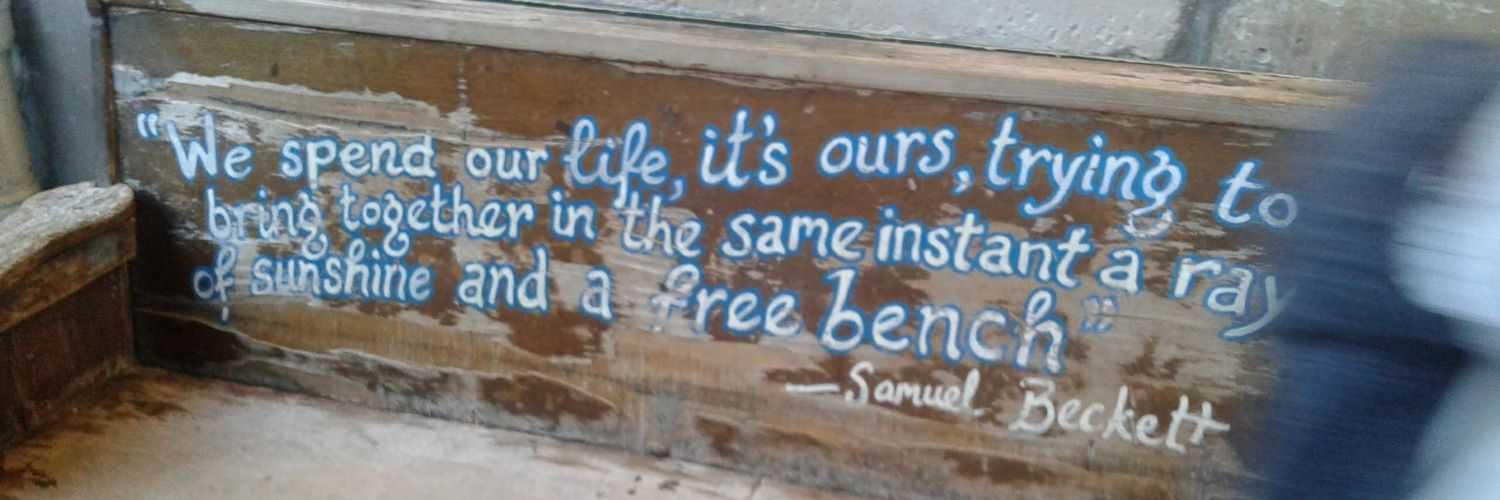 "We spend our life, it's ours, trying to
bring together in the same instant a ray
of sunshine and a free bench"
—Samuel Beckett